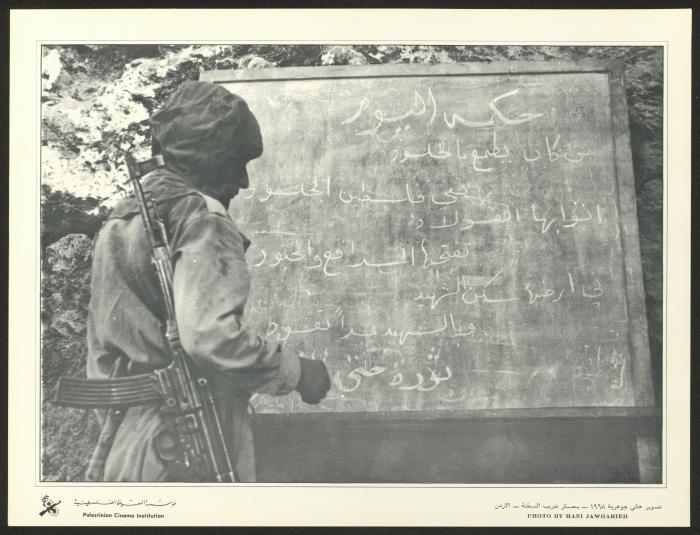 حكمه اليوم
من كان يطمع بالخلود
فلسطين الخلود
ابوابها الفولاذ
تفتحها المدافع والجنود
في ارضها سكن الشهيد
وبالشهيد غداً تعود
ثورة حتى
مؤسسة السينما الفلسطينية
Palestinian Cinema Institution
تصوير هاني جوهرية ١٩٦٨ — معسكر تدريب السخنة — الاردن
PHOTO BY HANI JAWHARIEH